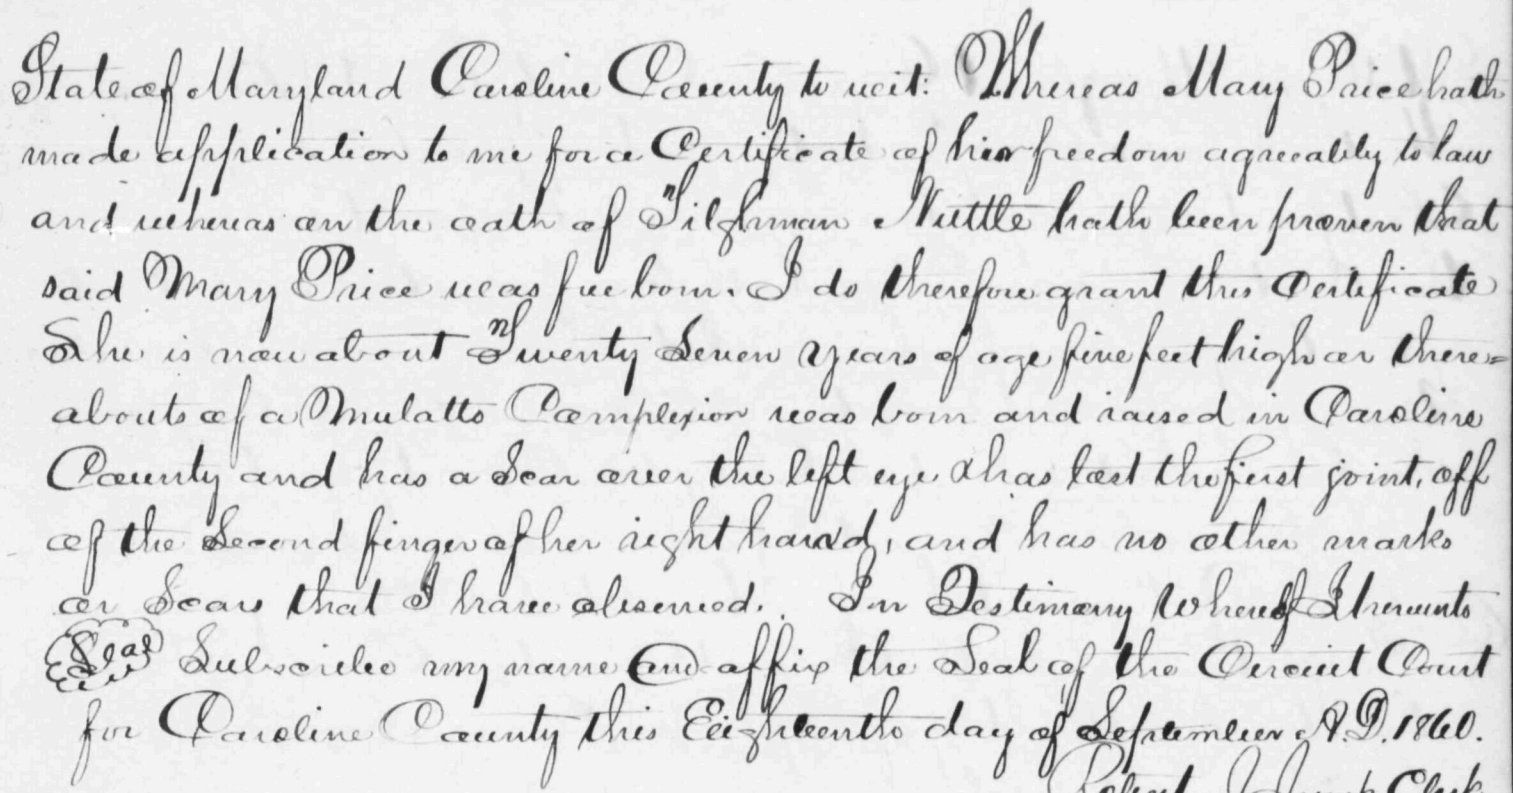 State of Maryland Caroline County to wit: Whereas Mary Price hath
made application to me for a Certificate of her freedom agreeably to law
and whereas on the oath of Tilghman Nuttle hath been proven that
said Mary Price was free born. I do therefore grant this Certificate
She is now about Twenty Seven years of age five feet high or there=
abouts of a Mulatto Complexion was born and raised in Caroline
County and has a Scar over the left eye & has lost the first joint, off
of the Second finger of her right hand, and has no other marks
or Scars that I have observed. In Testimony Whereof I hereunto
Seal Subscribe my name and affix the Seal of the Circuit Court
for Caroline County this Eighteenth day of September A.D. 1860.
Robert Clerk